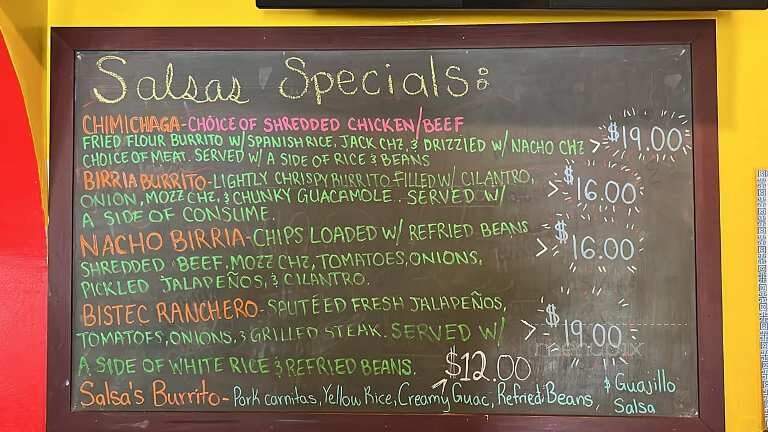 Salsas Specials:
CHIMICHAGA-CHOICE OF SHREDDED CHICKEN/BEEF
FRIED FLOUR BURRITO W/ SPANISH RICE, JACK CHZ, & DRIZZIED W/ NACHO CHZ > $19.00
CHOICE OF MEAT. SERVED W/ A SIDE OF RICE & BEANS
BIRRIA BURRITO-LIGHTLY CHRISPY BURRITO FILLED W/ CILANTRO, > $16.00
ONION, MOZZ CHZ, & CHUNKY GUACAMOLE. SERVED W/
A SIDE OF CONSUME.
NACHO BIRRIA-CHIPS LOADED W/ REFRIED BEANS > $16.00
SHREDDED BEEF, MOZZ CHZ, TOMATOES, ONIONS,
PICKLED JALAPEÑOS, & CILANTRO.
BISTEC RANCHERO-SAUTÉED FRESH JALAPEÑOS,
TOMATOES, ONIONS, & GRILLED STEAK. SERVED W/ > $19.00
A SIDE OF WHITE RICE & REFRIED BEANS. $12.00
Salsa's Burrito-Pork carnitas, Yellow Rice, Creamy Guac, Refried Beans, & Guajillo
Salsa